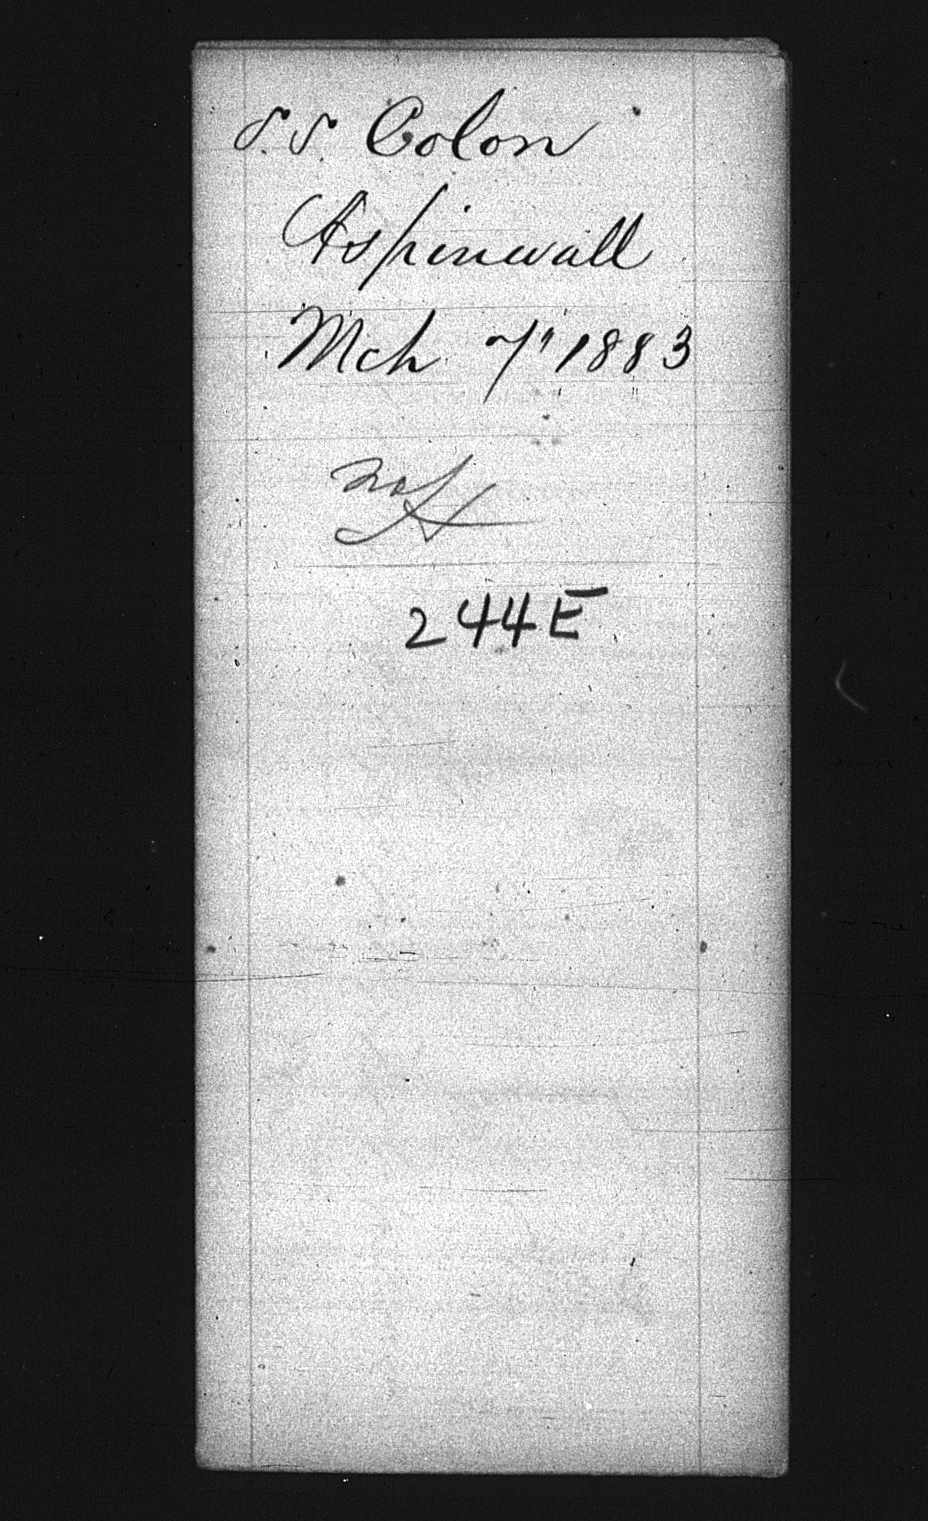 S.S. Colon
Aspinwall
Mch 7" 1883
244E